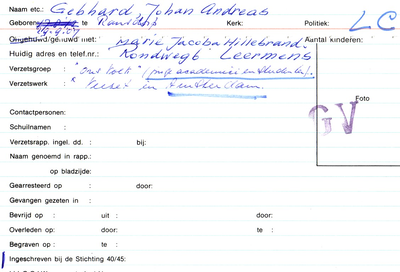 Naam etc.: Gebhard, Johan Andreas
Geboren te Kerk: Politiek: LC
19.9.07
Ongehuwd/gehuwd met: Marie Jacoba Hillebrand. Aantal kinderen:
Huidig adres en telef.nr.: Rondweg 6 Leermens
Verzetsgroep : (jonge academici en studenten).
Verzetswerk : Verzet in Amsterdam.
Foto
GV
Contactpersonen:
Schuilnamen :
Verzetsrapp. ingel. dd. : bij:
Naam genoemd in rapp.:
op bladzijde:
Gearresteerd op : door:
Gevangen gezeten in :
Bevrijd op : uit : door:
Overleden op: door: te :
Begraven op : te :
Ingeschreven bij de Stichting 40/45: